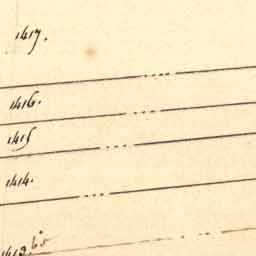 1417.
1416.
1415
1414.